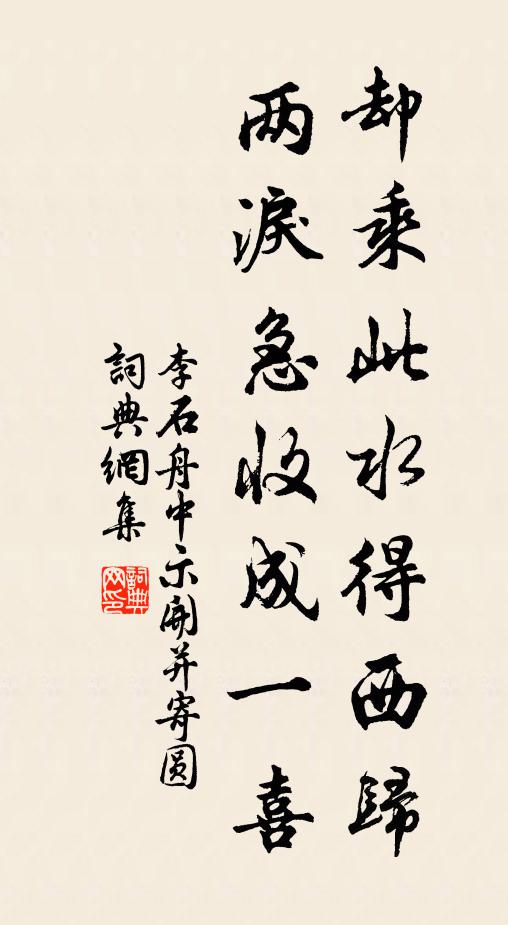 却乘此水得西歸
两淚急收成一喜
李石舟中示開并寄圓
詞典網集
詞典
网印